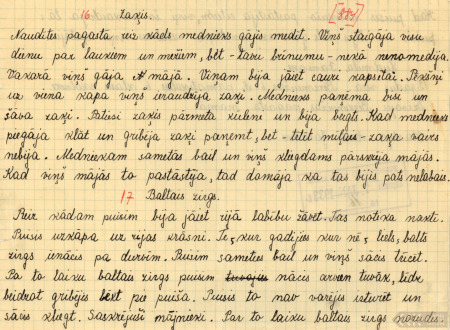 16 Zaķis. [884]
Naudītes pagastā reiz kāds mednieks gājis medīt. Viņš staigāja visu
dienu pa laukiem un mežiem, bet - tavu brīnumu - nekā nenomedīja.
Vakarā viņš gāja mājā. Viņam bija jāiet cauri kapsētai. Pēkšņi
uz viena kapa viņš ieraudzīja zaķi. Mednieks paņēma bisi un
šāva zaķi. Patiesi zaķis pārmeta kūleni un bija beigts. Kad mednieks
piegāja klāt un gribēja zaķi paņemt, bet - tētīt mīļais - zaķa vairs
nebija. Medniekam sametās bail un viņš kliegdams pārskrēja mājās.
Kad viņš mājās to pastāstīja, tad domāja ka tas bijis pats nelabais.
17 Baltais zirgs.
Reiz kādam puisim bija jāiet rijā labību žāvēt. Tas notika naktī.
Puisis uzkāpa uz rijas krāsni. Te, kur gadījies kur nē, liels, balts
zirgs ienācis pa durvīm. Puisim sameties bail un viņš sācis trīcēt.
Pa to laiku baltais zirgs puisim nācis arvien tuvāk, līdz
beidzot gribējis kāpt pie puiša. Puisis to nav varējis izturēt un
sācis kliegt. Saskrējuši mājnieki. Par to laiku baltais zirgs nozudis.